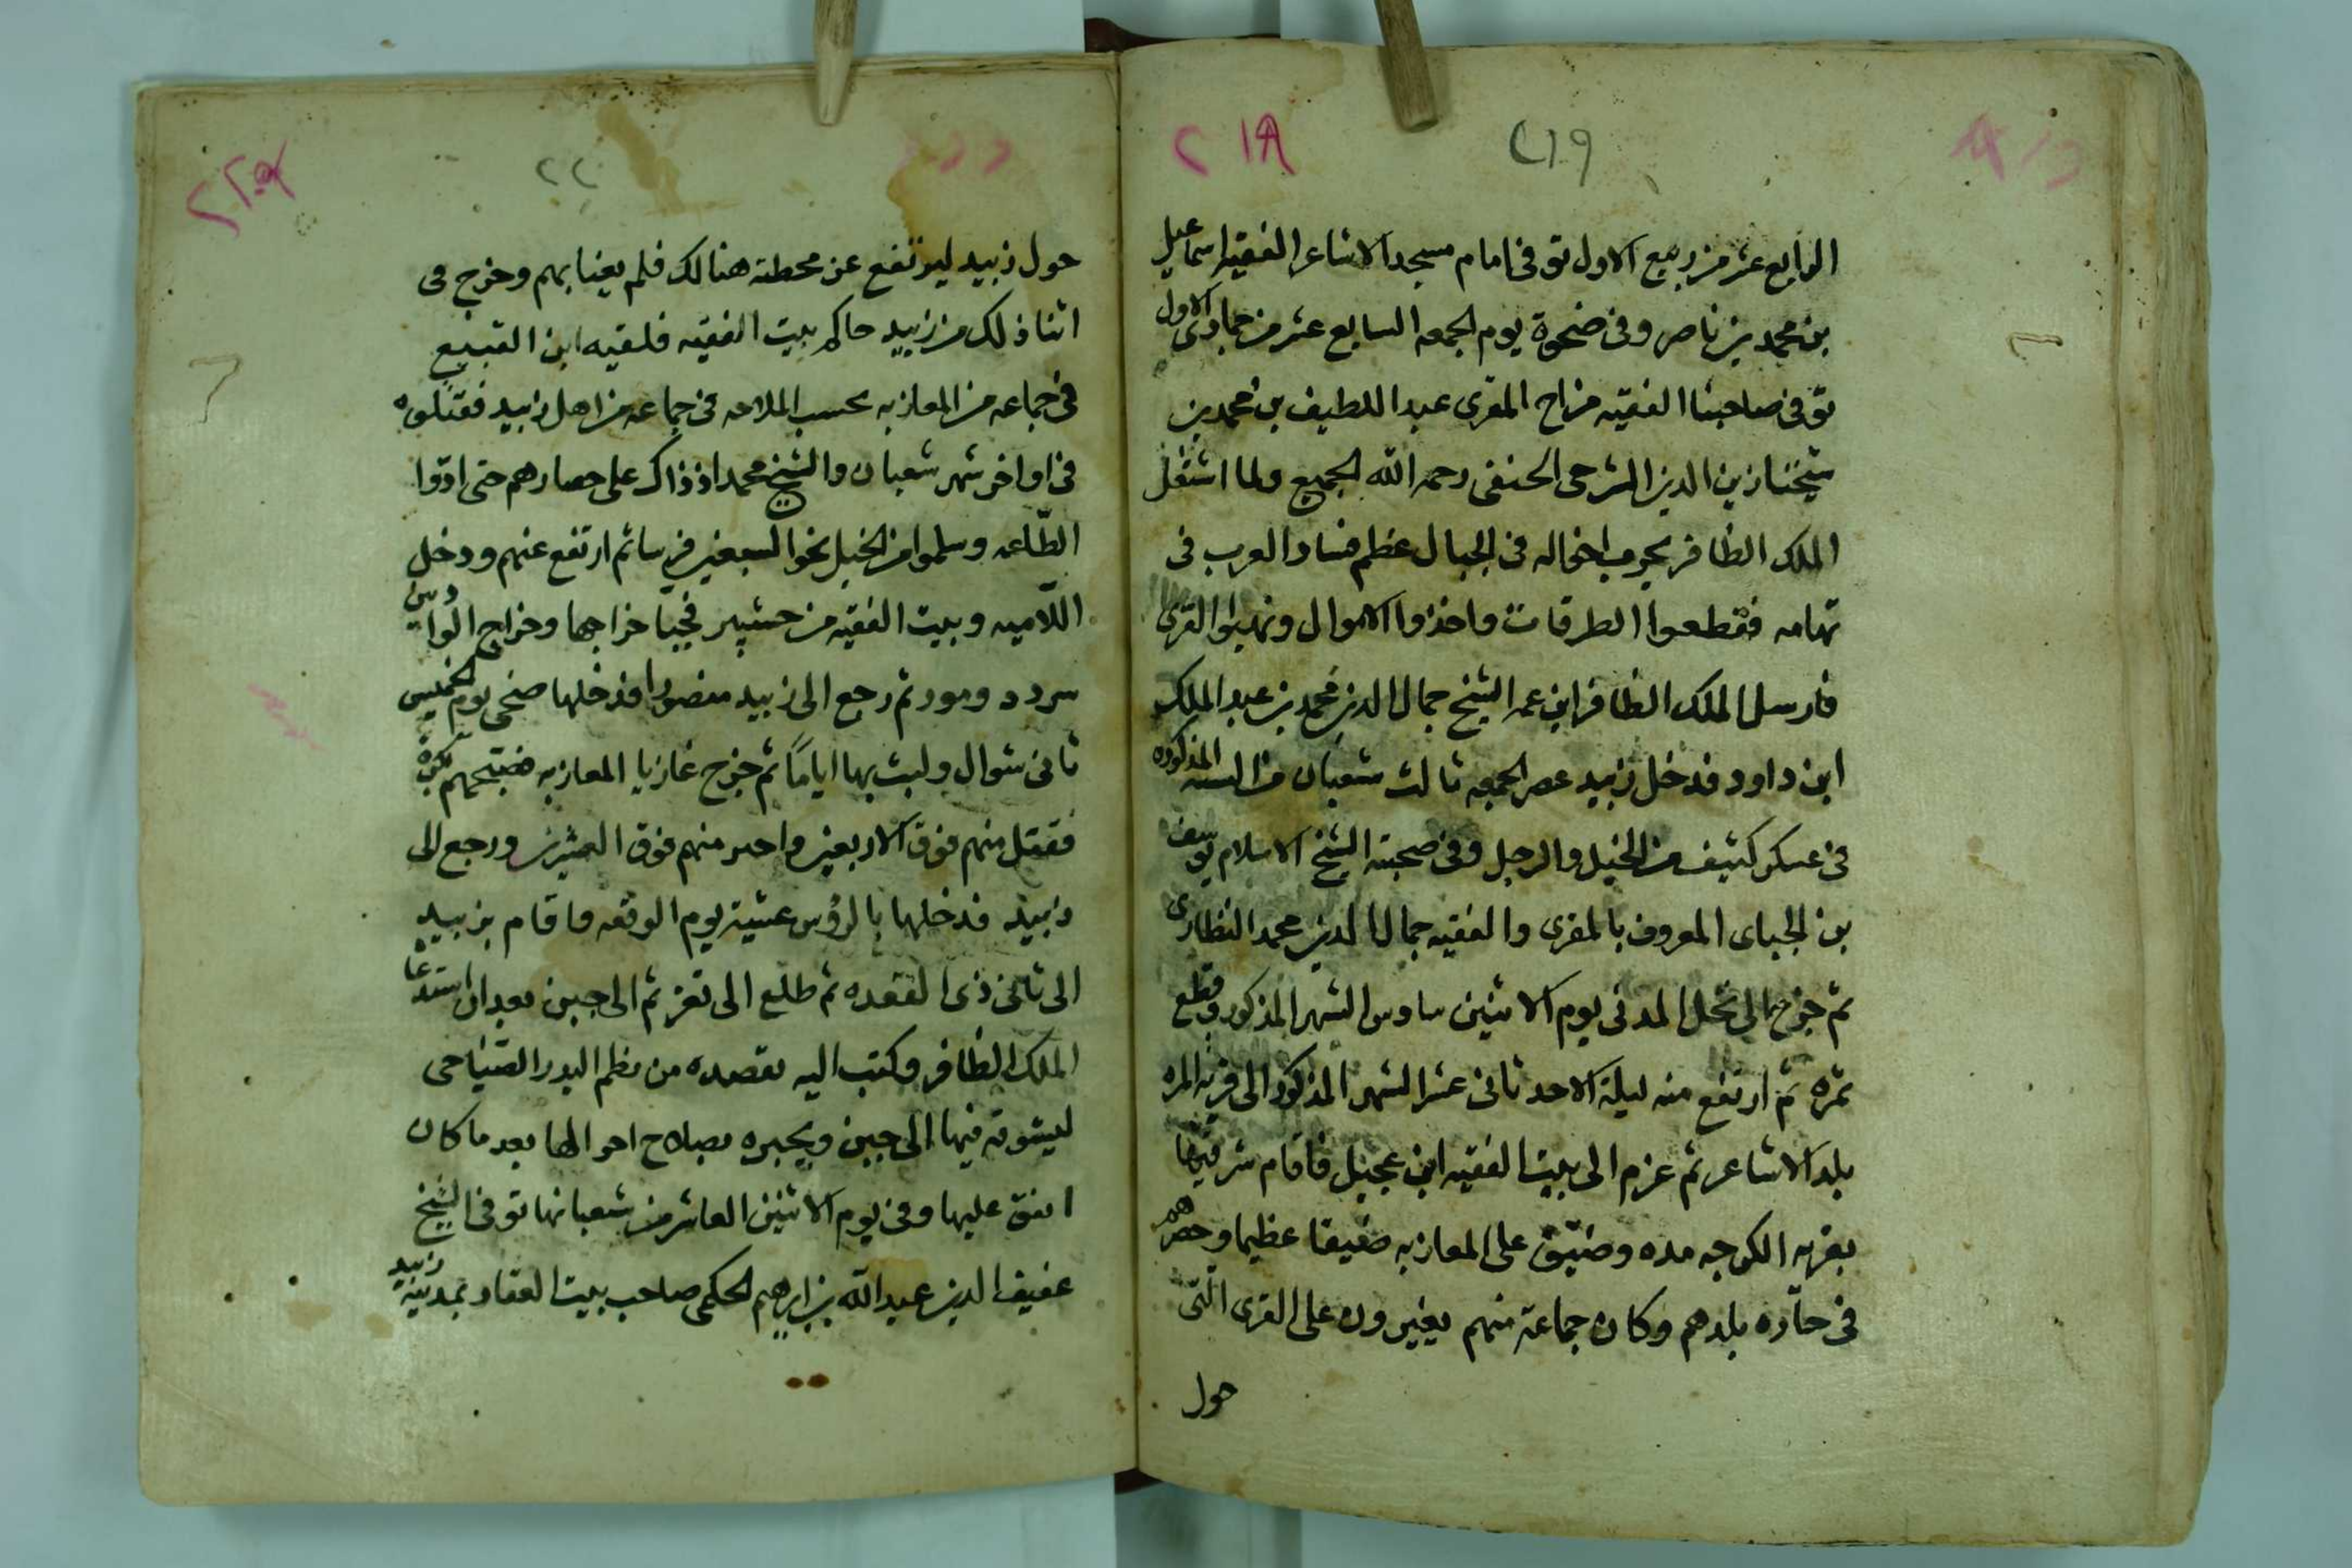 ٢١٨
٢١٩
الرابع عشر من ربيع الاول توفى امام مسجد الاشاعر الفقيه اسماعيل
بن محمد بن ناصر وفى ضحوة يوم الجمعه السابع عشر من جمادى الاول
توفى صاحبنا الفقيه مزاح المقرى عبد اللطيف بن محمد بن
شيخنا زين الدين الشرجى الحنفى رحمه الله الجميع ولما اشتغل
الملك الظافر بحرب اخواله فى الجبال عظم فساد العرب فى
تهامه فقطعوا الطرقات واخذوا الاموال ونهبوا القرى
فارسل الملك الظافر ابن عمه الشيخ جمال الدين محمد بن عبد الملك
ابن داود فدخل زبيد عصر الجمعه ثالث شعبان من السنه المذكوره
فى عسكر كثيف من الخيل والرجل وفى صحبته الشيخ الاسلام يوسف
بن الجباى المعروف بالمقرى والفقيه جمال الدين محمد النظارى
ثم خرج الى نخل المدنى يوم الاثنين سادس الشهر المذكور وقطع
ثمره ثم ارتفع منه ليلة الاحد ثانى عشر الشهر المذكور الى قريه المره
بلد الاشاعر ثم عزم الى بيت الفقيه ابن عجيل فاقام شرقيها
بقريه الكوجه مده وضيق على المعازبه ضيقا عظيما وحصرهم
فى حازه بلدهم وكان جماعة منهم يغيرون على القرى التى
حول
٢٢٠
حول زبيد ليرتفع عن محطته هنالك فلم يعبا بهم وخرج فى
اثنا ذلك من زبيد حاكم بيت الفقيه فلقيه ابن القبيع
فى جماعه من المعازبه بحسب الملامه فى جماعه من اهل زبيد فقتلوه
فى اواخر شهر شعبان والشيخ محمد اذ ذاك على حصارهم حتى ادّوا
الطّاعه وسلموا من الخيل نحو السبعين فرسا ثم ارتفع عنهم ودخل
اللّاميه وبيت الفقيه من حشيبر فجبا خراجها وخراج الواديين
سردد ومور ثم رجع الى زبيد منصورا فدخلها ضحى يوم الخميس
ثانى شوال ولبث بها اياماً ثم خرج غازيا المعازبه فصبّحهم بكرة
فقتل منهم فوق الاربعين واسر منهم فوق العشرين ورجع الى
زبيد فدخلها بالرؤس عشية يوم الوقعه فاقام بزبيد
الى ثانى ذى القعده ثم طلع الى تعز ثم الى جبن بعد ان استدعا
الملك الظافر وكتب اليه بقصيده من نظم البدر الصنياحى
ليشوقه فيها الى جبن ويخبره بصلاح احوالها بعد ما كان
اتفق عليها وفى يوم الاثنين العاشر من شعبانها توفى الشيخ
عفيف الدين عبد الله بن ابرهيم الحكمى صاحب بيت العقاد بمدينة زبيد